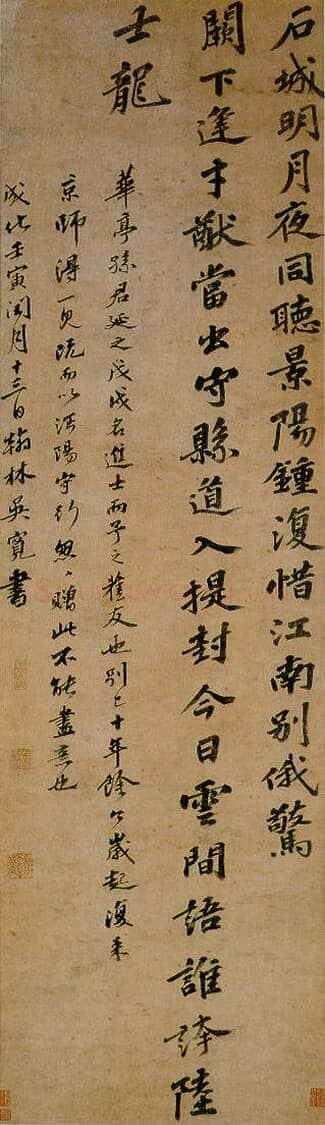 石城明月夜同聽景陽鍾復惜江南別俄驚
闕下逢才猷當出守縣道入提封今日雲間語誰誇陸
士龍
華亭孫君延之戊戌名進士而予之舊友也別已十年餘今歲起復來
京師得一見既而以沔陽守行怱〻贈此不能盡意也
成化壬寅閏月十三日翰林吳寬書